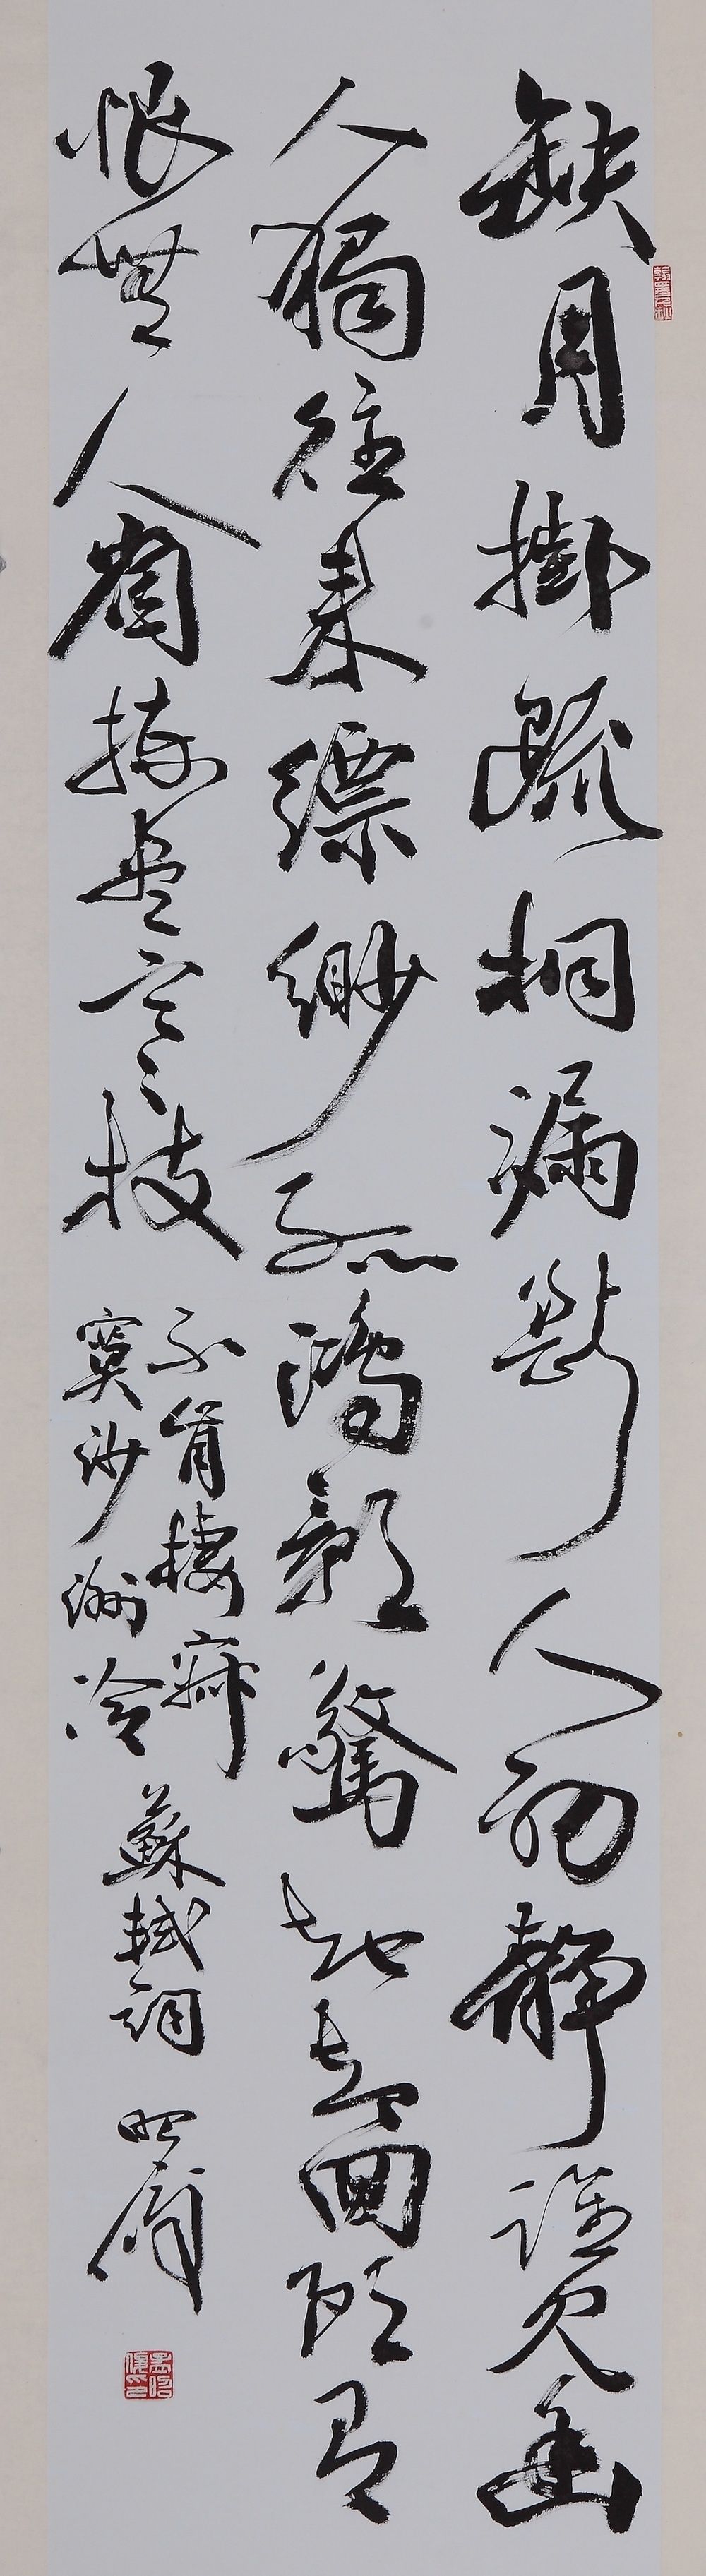 缺月掛疏桐漏斷人初靜誰見幽
人獨往來縹緲孤鴻影驚起却回頭有
恨無人省揀盡寒枝
不肯棲寂
寞沙洲冷
蘇軾詞